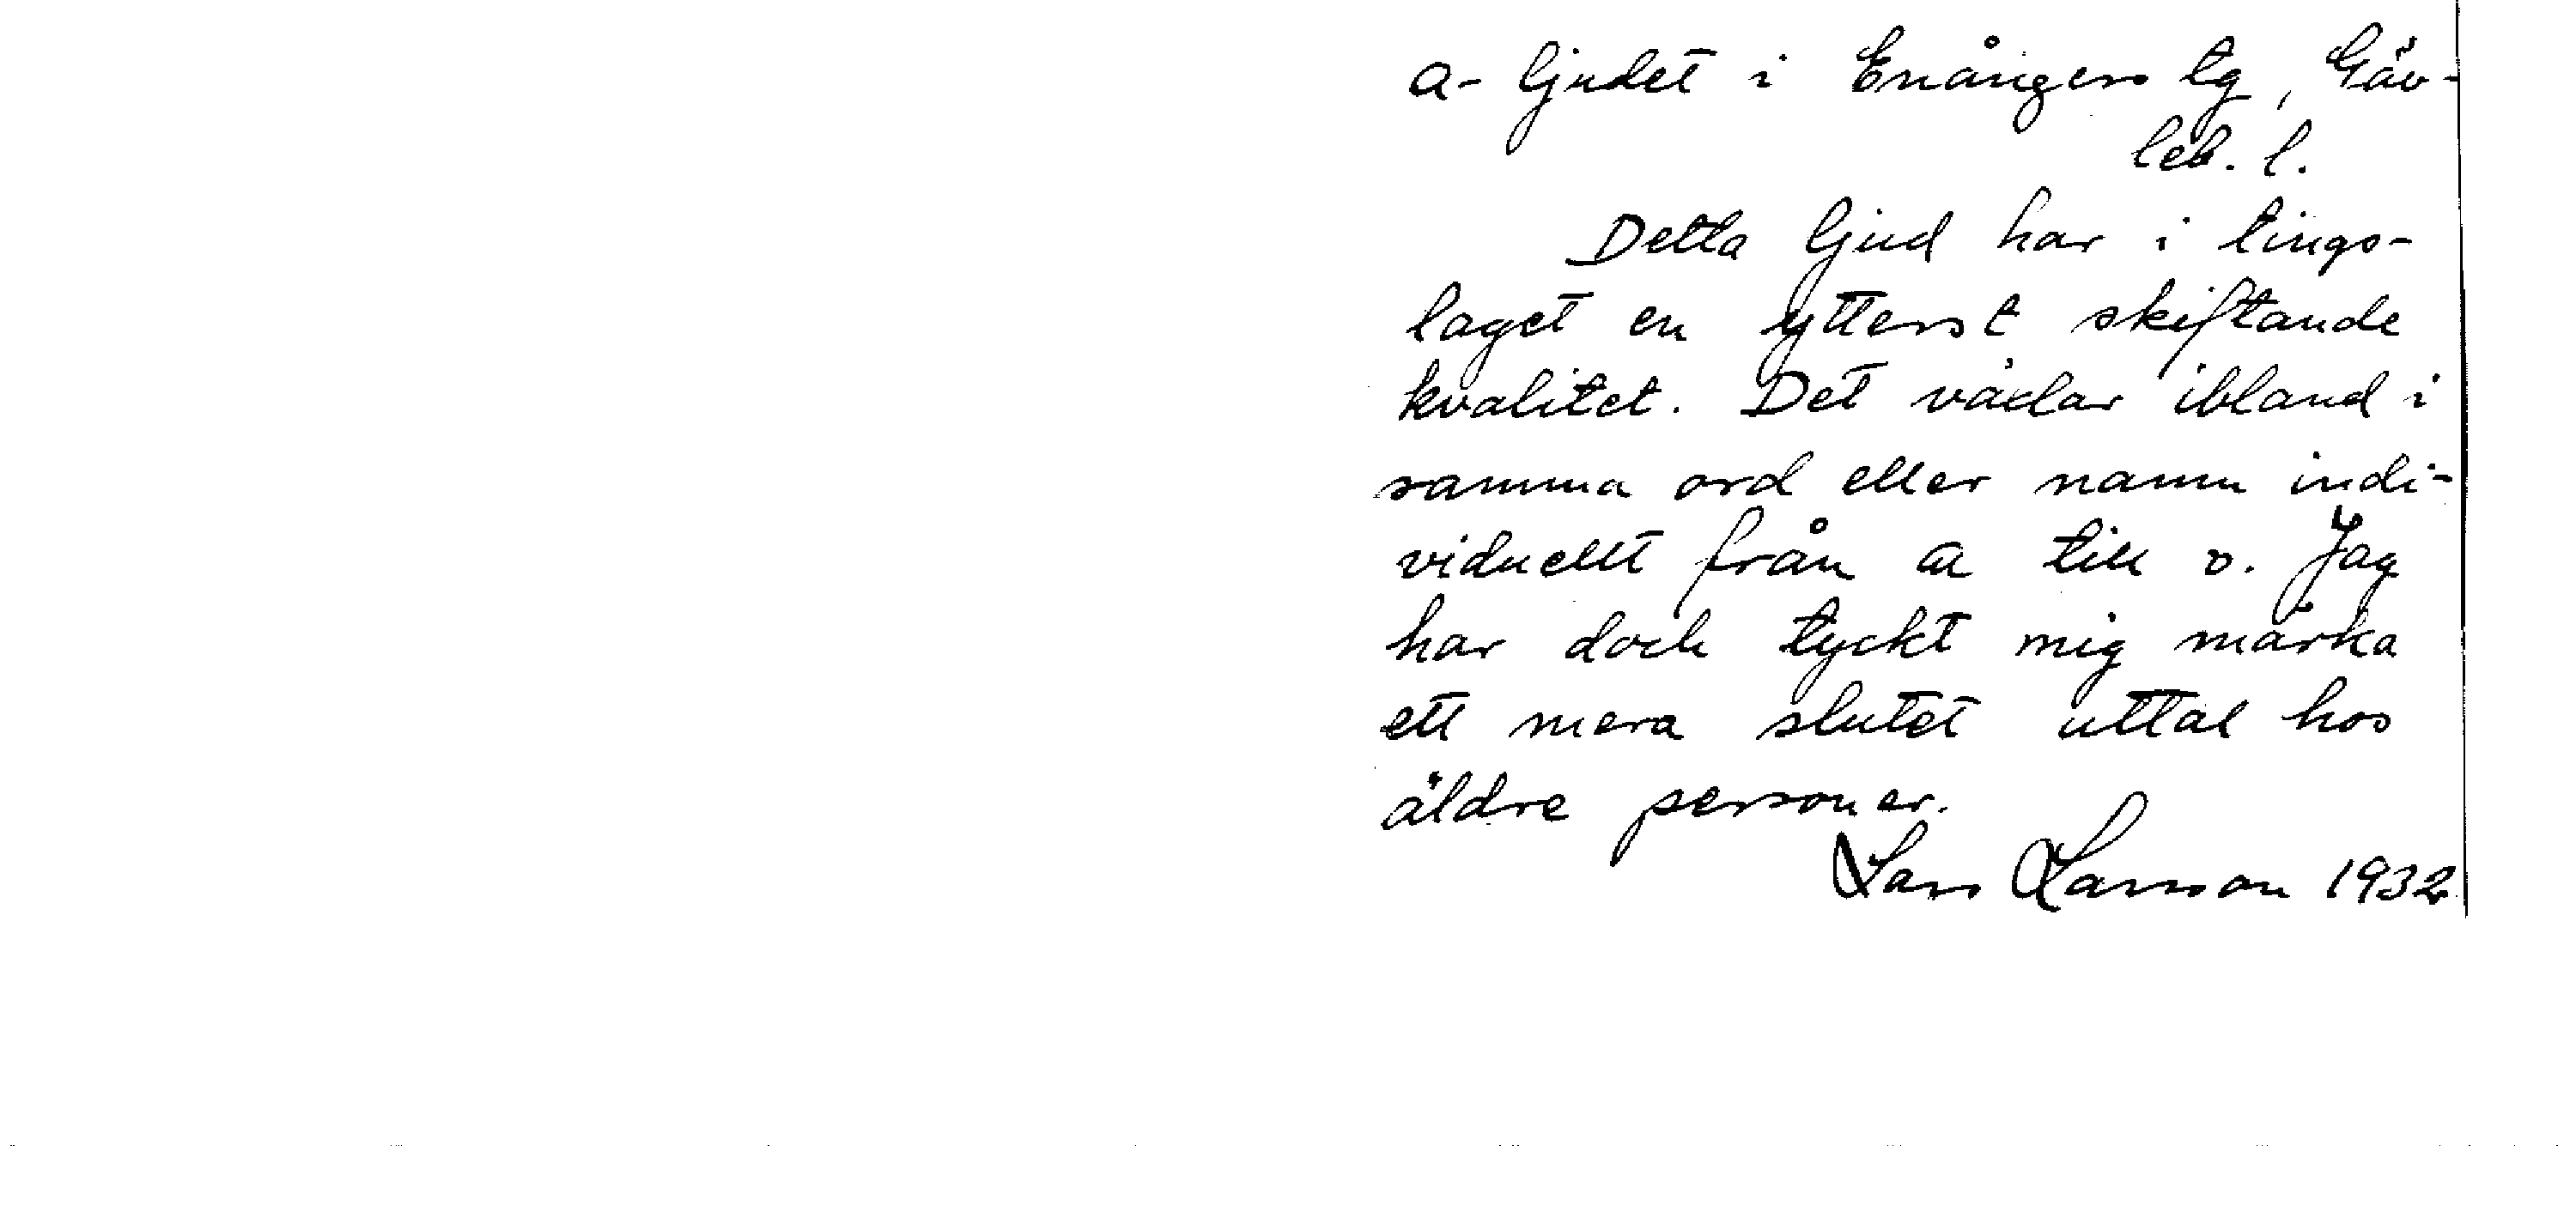 a-ljudet i Enångers tg, Gäv-
leb. l.
Detta ljud har i tings-
laget en ytterst skiftande
kvalitet. Det växlar ibland i
samma ord eller namn indi-
viduellt från a till o. Jag
har dock tyckt mig märka
ett mera slutet uttal hos
äldre personer.
Lars Larsson 1932